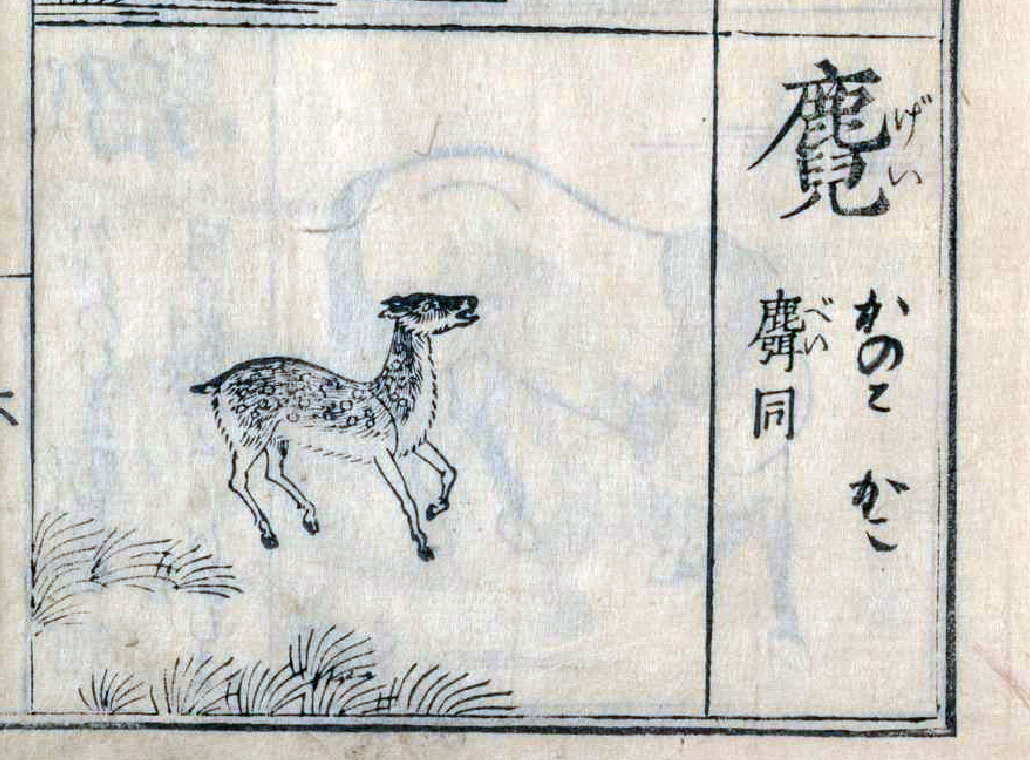 麑
げい
かのこ かこ
麛同
べい